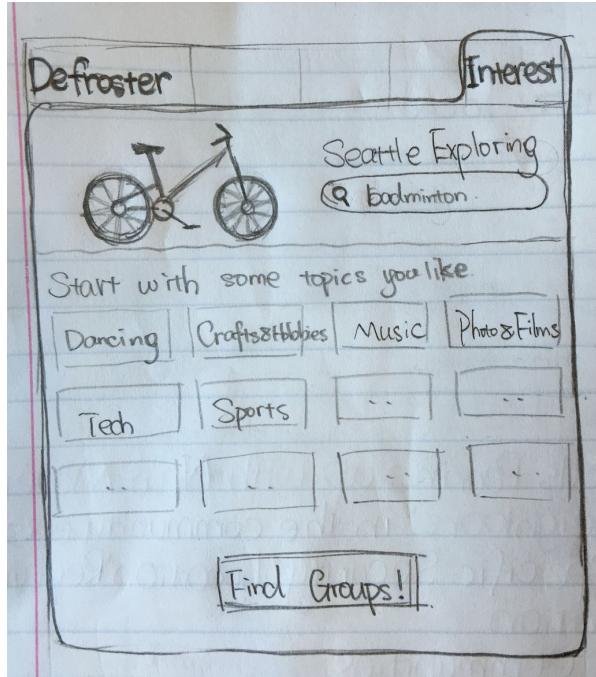 Defroster Interest
Seattle Exploring
badminton
Start with some topics you like
Dancing Crafts&Hobbies Music Photo&Films
Tech Sports .. ..
.. .. .. ..
Find Groups!